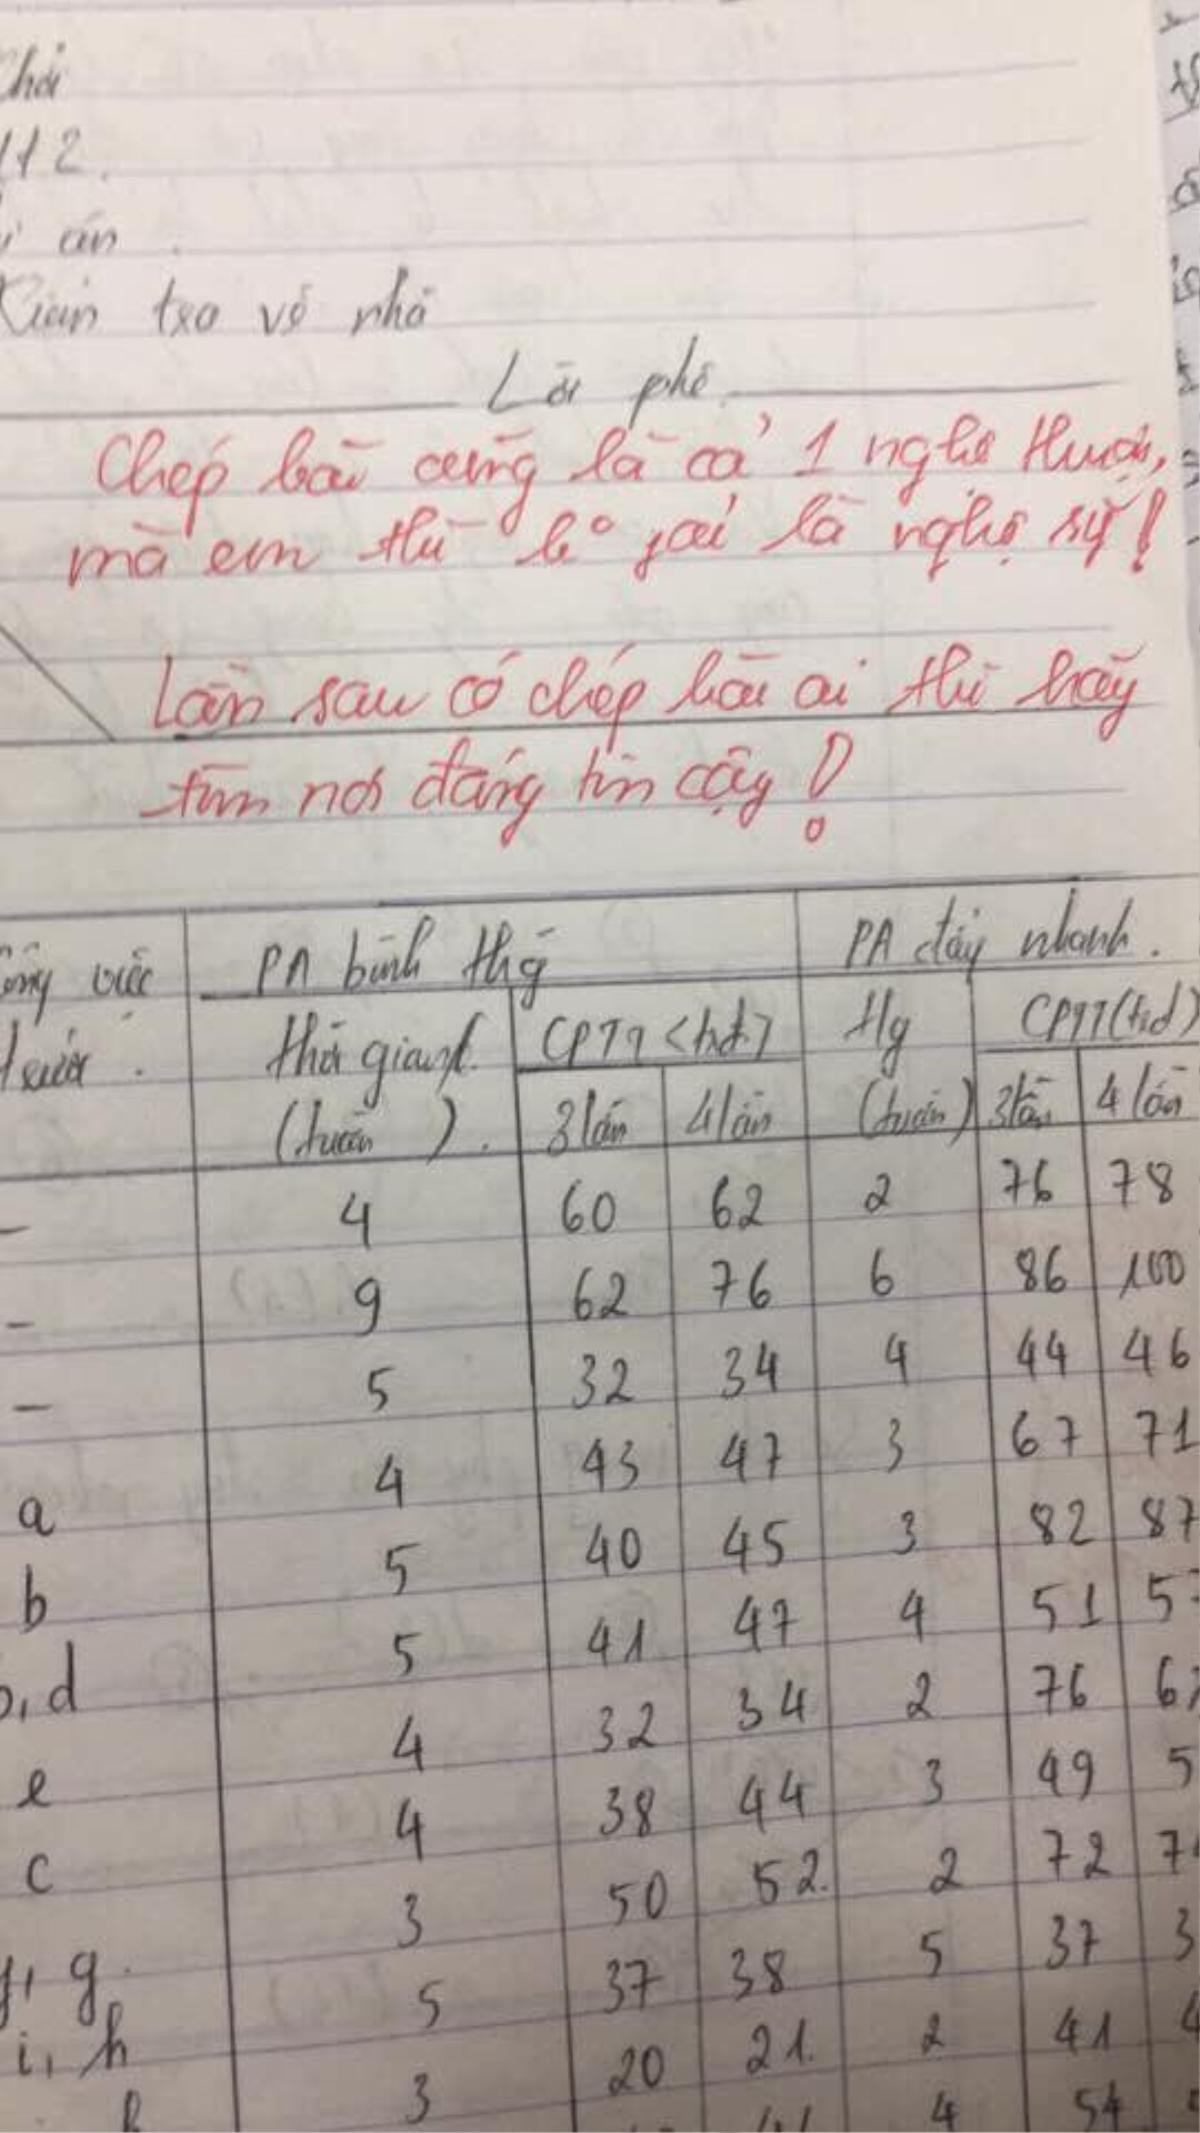 112.
án
Kiểm tra về nhà
Lời phê
Chép bài cũng là cả 1 nghệ thuật,
mà em thì ko fải là nghệ sỹ!
Lần sau có chép bài ai thì hãy
tìm nơi đáng tin cậy!
việc PA bình thg PA đẩy nhanh.
trước. Thời gian CPTT (trđ) Tg CPTT (trđ)
(tuần). 3 lần 4 lần (tuần) 3 lần 4 lần
- 4 60 62 2 76 78
- 9 62 76 6 86 100
- 5 32 34 4 44 46
a 4 43 47 3 67 71
b 5 40 45 3 82 87
, d 5 41 47 4 51
e 4 32 34 2 76
c 4 38 44 3 49
, g 3 50 52. 2 72
i, h 5 37 38 5 37
3 20 21. 2 41
4 54